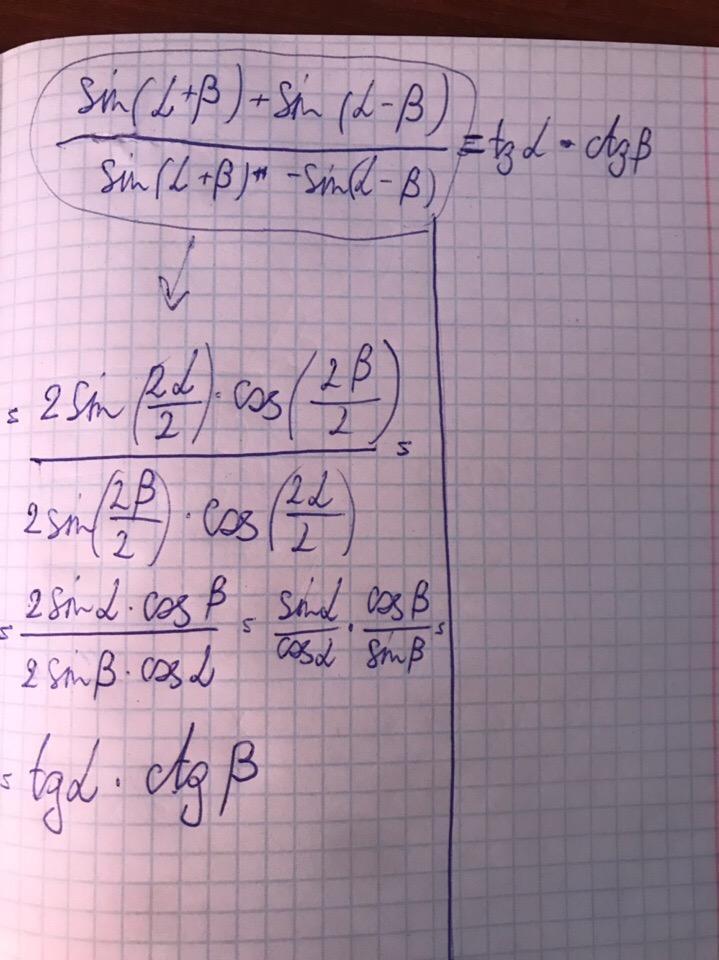 sin(α+β)+sin(α-β)
sin(α+β) -sin(α-β)
= tgα · ctgβ
= 2sin(2α/2) · cos(2β/2) =
2sin(2β/2) · cos(2α/2)
= 2sinα · cosβ = sinα · cosβ =
2sinβ · cosα cosα sinβ
= tgα · ctgβ